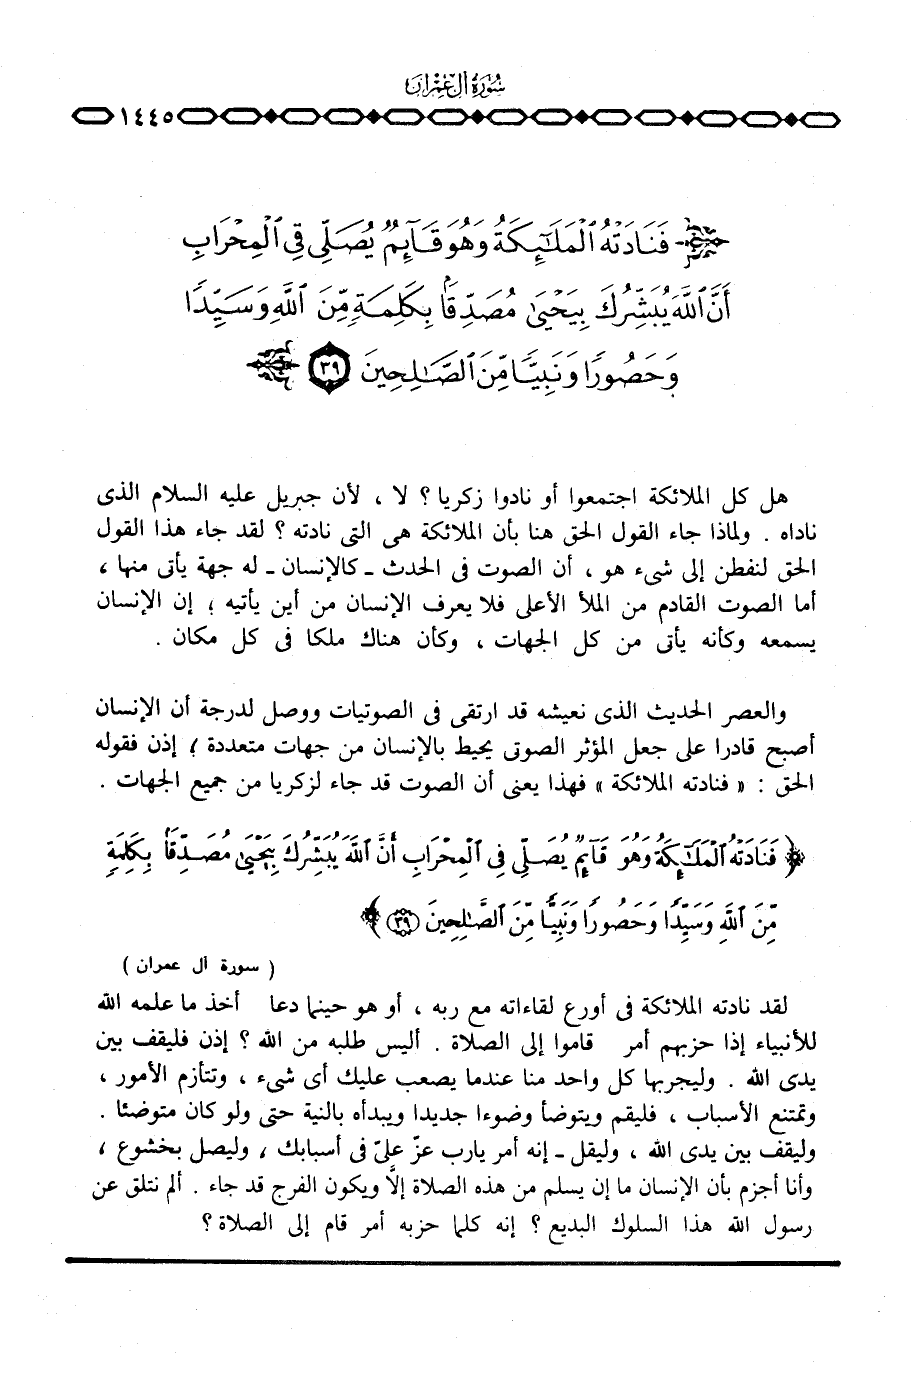 سُورَةُ آلِ عِمْرَانَ
١٤٤٥
فَنَادَتْهُ ٱلْمَلَٰٓئِكَةُ وَهُوَ قَآئِمٌ يُصَلِّى فِى ٱلْمِحْرَابِ
أَنَّ ٱللَّهَ يُبَشِّرُكَ بِيَحْيَىٰ مُصَدِّقًۢا بِكَلِمَةٍ مِّنَ ٱللَّهِ وَسَيِّدًا
وَحَصُورًا وَنَبِيًّا مِّنَ ٱلصَّٰلِحِينَ ٣٩
هل كل الملائكة اجتمعوا أو نادوا زكريا ؟ لا ، لأن جبريل عليه السلام الذى
ناداه . ولماذا جاء القول الحق هنا بأن الملائكة هى التى نادته ؟ لقد جاء هذا القول
الحق لنفطن إلى شىء هو ، أن الصوت فى الحدث ـ كالإنسان ـ له جهة يأتى منها ،
أما الصوت القادم من الملأ الأعلى فلا يعرف الإنسان من أين يأتيه ؛ إن الإنسان
يسمعه وكأنه يأتى من كل الجهات ، وكأن هناك ملكا فى كل مكان .
والعصر الحديث الذى نعيشه قد ارتقى فى الصوتيات ووصل لدرجة أن الإنسان
أصبح قادرا على جعل المؤثر الصوتى يحيط بالإنسان من جهات متعددة ؛ إذن فقوله
الحق : « فنادته الملائكة » فهذا يعنى أن الصوت قد جاء لزكريا من جميع الجهات .
﴿ فَنَادَتْهُ ٱلْمَلَٰٓئِكَةُ وَهُوَ قَآئِمٌ يُصَلِّى فِى ٱلْمِحْرَابِ أَنَّ ٱللَّهَ يُبَشِّرُكَ بِيَحْيَىٰ مُصَدِّقًۢا بِكَلِمَةٍ
مِّنَ ٱللَّهِ وَسَيِّدًا وَحَصُورًا وَنَبِيًّا مِّنَ ٱلصَّٰلِحِينَ ٣٩ ﴾
( سورة آل عمران )
لقد نادته الملائكة فى أورع لقاءاته مع ربه ، أو هو حينما دعا أخذ ما علمه الله
للأنبياء إذا حزبهم أمر قاموا إلى الصلاة . أليس طلبه من الله ؟ إذن فليقف بين
يدى الله . وليجربها كل واحد منا عندما يصعب عليك أى شىء ، وتتأزم الأمور ،
وتمتنع الأسباب ، فليقم ويتوضأ وضوءا جديدا ويبدأه بالنية حتى ولو كان متوضئا .
وليقف بين يدى الله ، وليقل ـ إنه أمر يارب عزّ علىّ فى أسبابك ، وليصل بخشوع ،
وأنا أجزم بأن الإنسان ما إن يسلم من هذه الصلاة إلَّا ويكون الفرج قد جاء . ألم نتلق عن
رسول الله هذا السلوك البديع ؟ إنه كلما حزبه أمر قام إلى الصلاة ؟